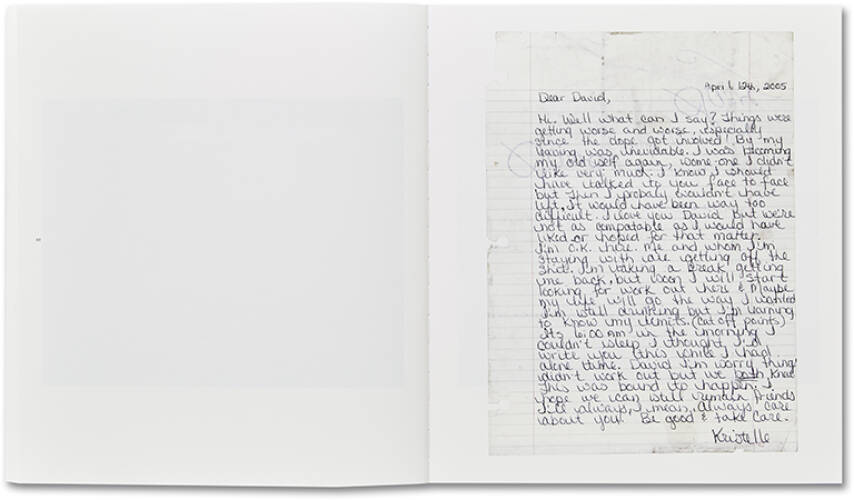 April 12th, 2005
Dear David,
Hi. Well what can I say? Things were
getting worse and worse, especially
since the dope got involved! By my
leaving was inevidable. I was becoming
my old self again, some-one I didn't
like very much. I know I should
have talked to you face to face
but then I probaly wouldn't have
left, it would have been way too
difficult. I love you David but we're
not as compatable as I would have
liked or hoped for that matter.
I'm O.K. here. Me and whom I'm
staying with are getting off the
shit. I'm taking a break, getting
me back, but soon I will start
looking for work out here & maybe
my life will go the way I wanted
I'm still drinking but I'm learning
to know my limits. (cut off points)
It's 6:00 AM in the morning I
couldn't sleep I thought I'd
write you this while I had
alone time. David I'm sorry things
didn't work out but we both knew
this was bound to happen. I
hope we can still remain friends
I'll always, I mean, always care
about you. Be good & take care.
Kristelle